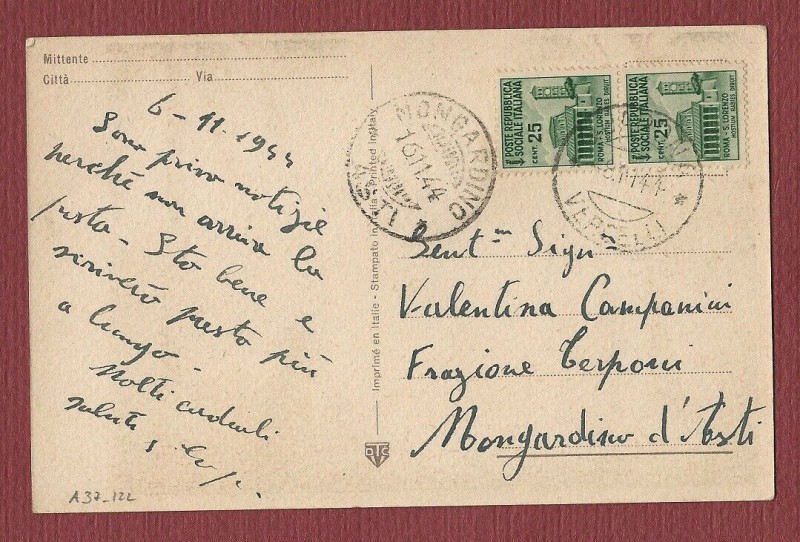 Mittente
Città Via
6-11-1944
Sono privo notizie
perché non arriva la
posta - Sto bene e
scriverò presto più
a lungo -
Molti cordiali
saluti,
A37-122
Imprimé en Italie - Stampato in Italia - Printed in Italy
MONGARDINO
16.11.44
(ASTI)
POSTE REPUBBLICA
SOCIALE ITALIANA
CENT. 25
ROMA - S. LORENZO
HOSTIUM RABIES DIRUIT
POSTE REPUBBLICA
SOCIALE ITALIANA
CENT. 25
ROMA - S. LORENZO
HOSTIUM RABIES DIRUIT
VERCELLI
Gent.m Sign.
Valentina Campanini
Frazione Terponi
Mongardino d'Asti